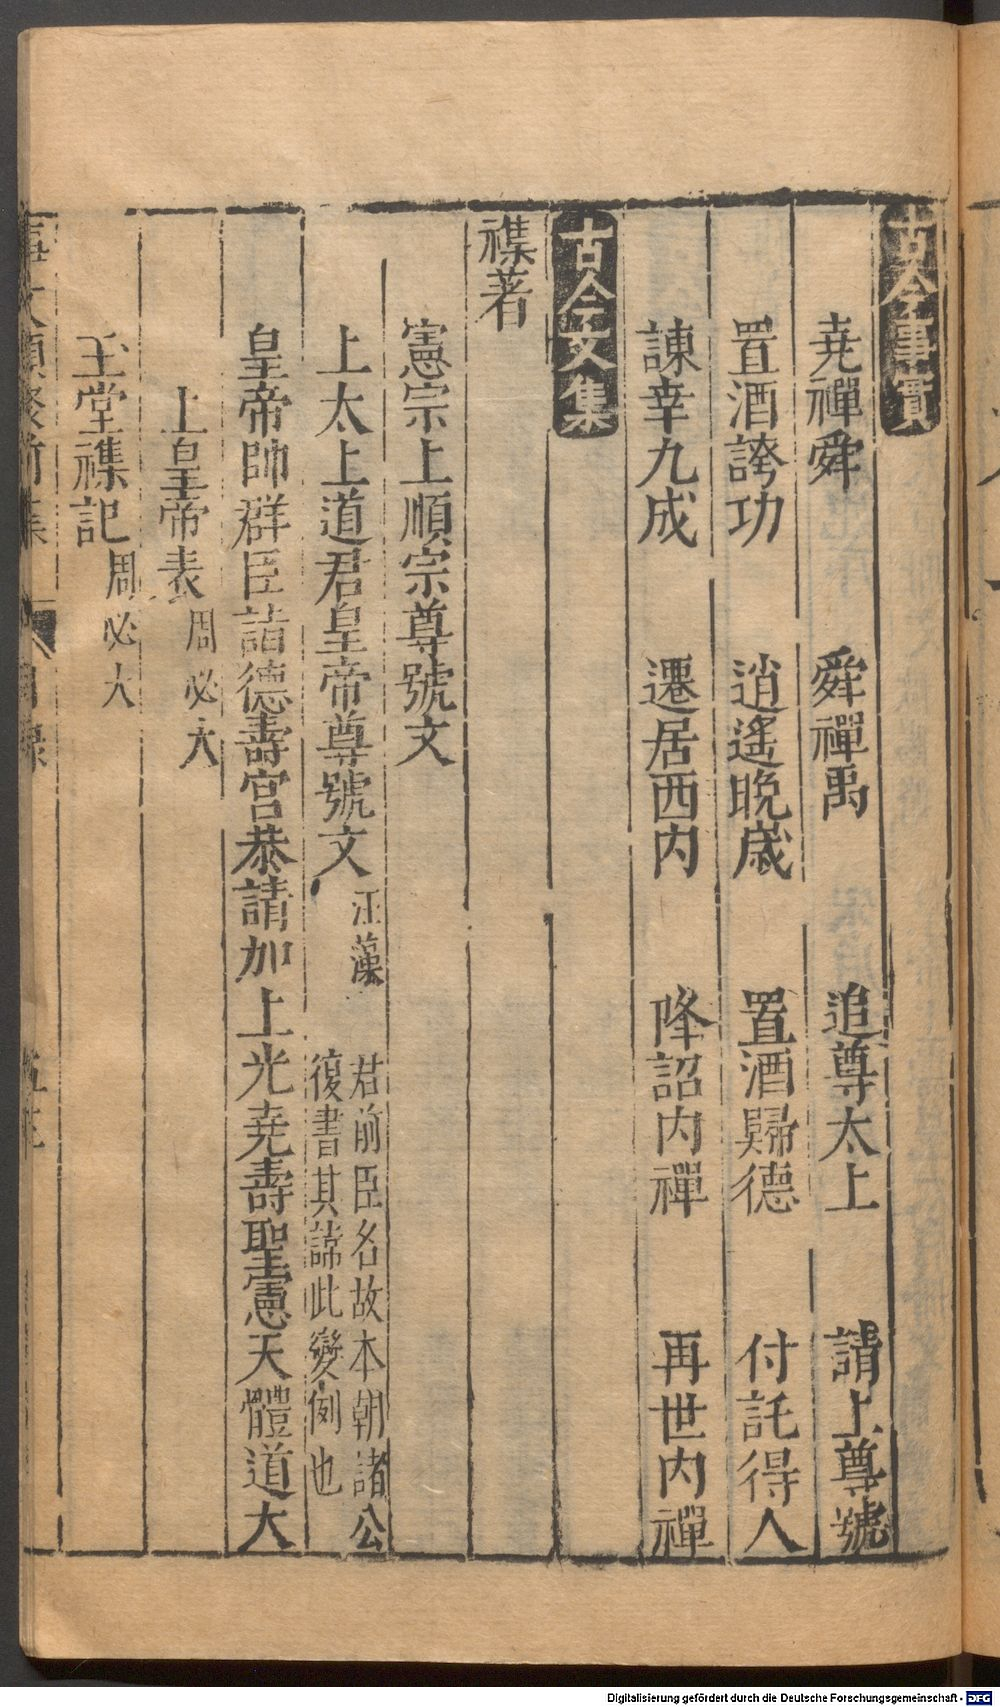 古今事實
堯禪舜 舜禪禹 追尊太上 請上尊號
置酒誇功 逍遙晚歲 置酒歸德 付託得人
諫幸九成 遷居西内 降詔内禪 再世内禪
古今文集
襍著
憲宗上順宗尊號文
上太上道君皇帝尊號文 汪藻 君前臣名故本朝諸公
復書其諱此變例也
皇帝帥群臣詣德壽宮恭請加上光堯壽聖憲天體道太
上皇帝表 周必大
玉堂襍記 周必大
事文類聚前集 目録
Digitalisierung gefördert durch die Deutsche Forschungsgemeinschaft - DFG